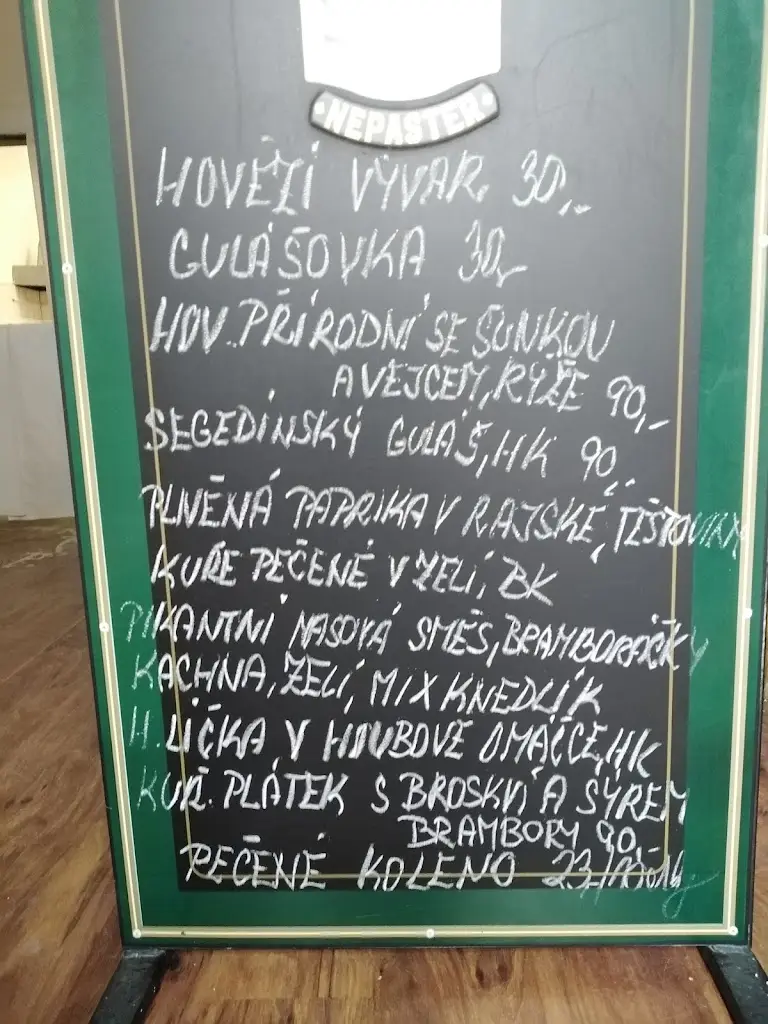 NEPASTER
HOVĚZÍ VÝVAR 30,-
GULÁŠOVKA 30,-
HOV. PŘÍRODNÍ SE ŠUNKOU
A VEJCEM, RÝŽE 90,-
SEGEDÍNSKÝ GULÁŠ, HK 90,-
PLNĚNÁ PAPRIKA V RAJSKÉ, TĚSTOVINY
KUŘE PEČENÉ V ZELÍ, BK
PIKANTNÍ MASOVÁ SMĚS, BRAMBORÁČKY
KACHNA, ZELÍ, MIX KNEDLÍK
H. LÍČKA V HOUBOVÉ OMÁČCE, HK
KUŘ. PLÁTEK S BROSKVÍ A SÝREM
BRAMBORY 90,-
PEČENÉ KOLENO